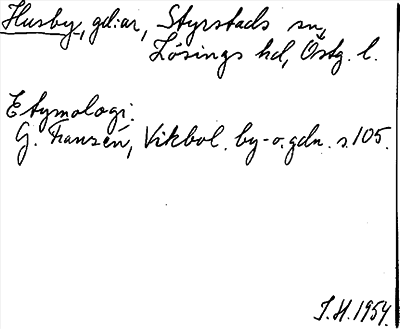 Husby, gd:ar, Styrstads sn,
Lösings hd, Östg. l.
Etymologi.
G. Franzén, Vikbol. by- o. gdn. s. 105.
J.H. 1954.